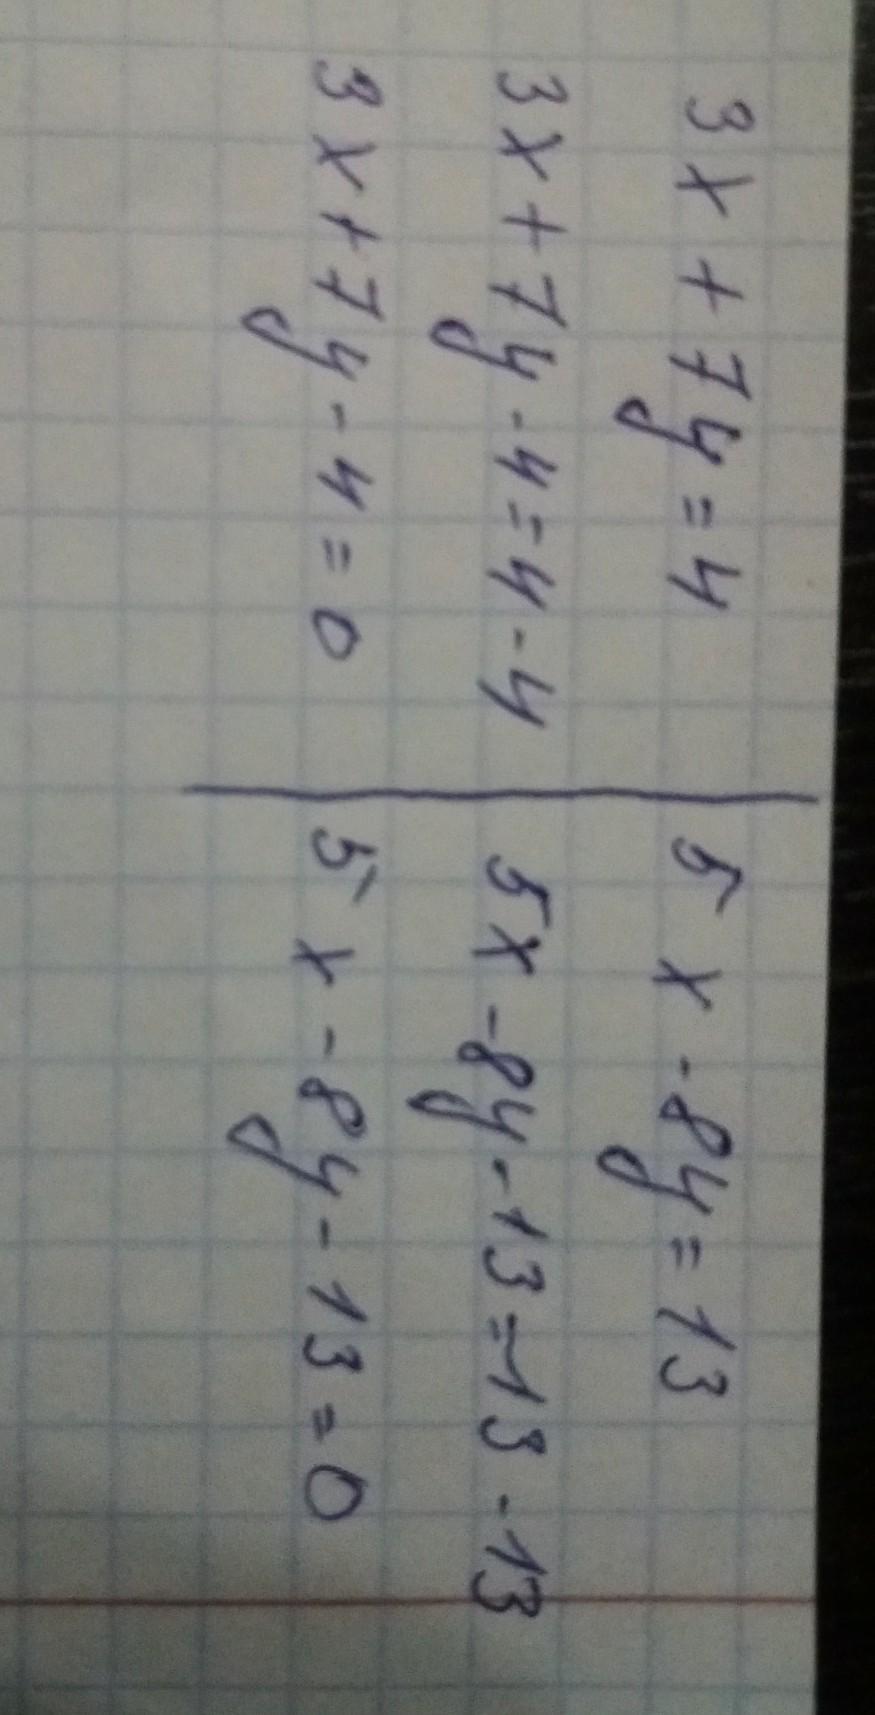 3x + 7y = 4
3x + 7y - 4 = 4 - 4
3x + 7y - 4 = 0
5x - 8y = 13
5x - 8y - 13 = 13 - 13
5x - 8y - 13 = 0